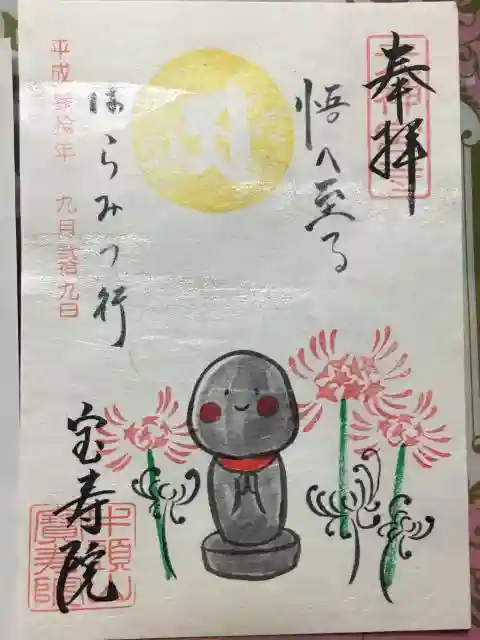 奉拝
悟へ至る
はらみつ行
平成参拾年 九月弐拾九日
宝寿院